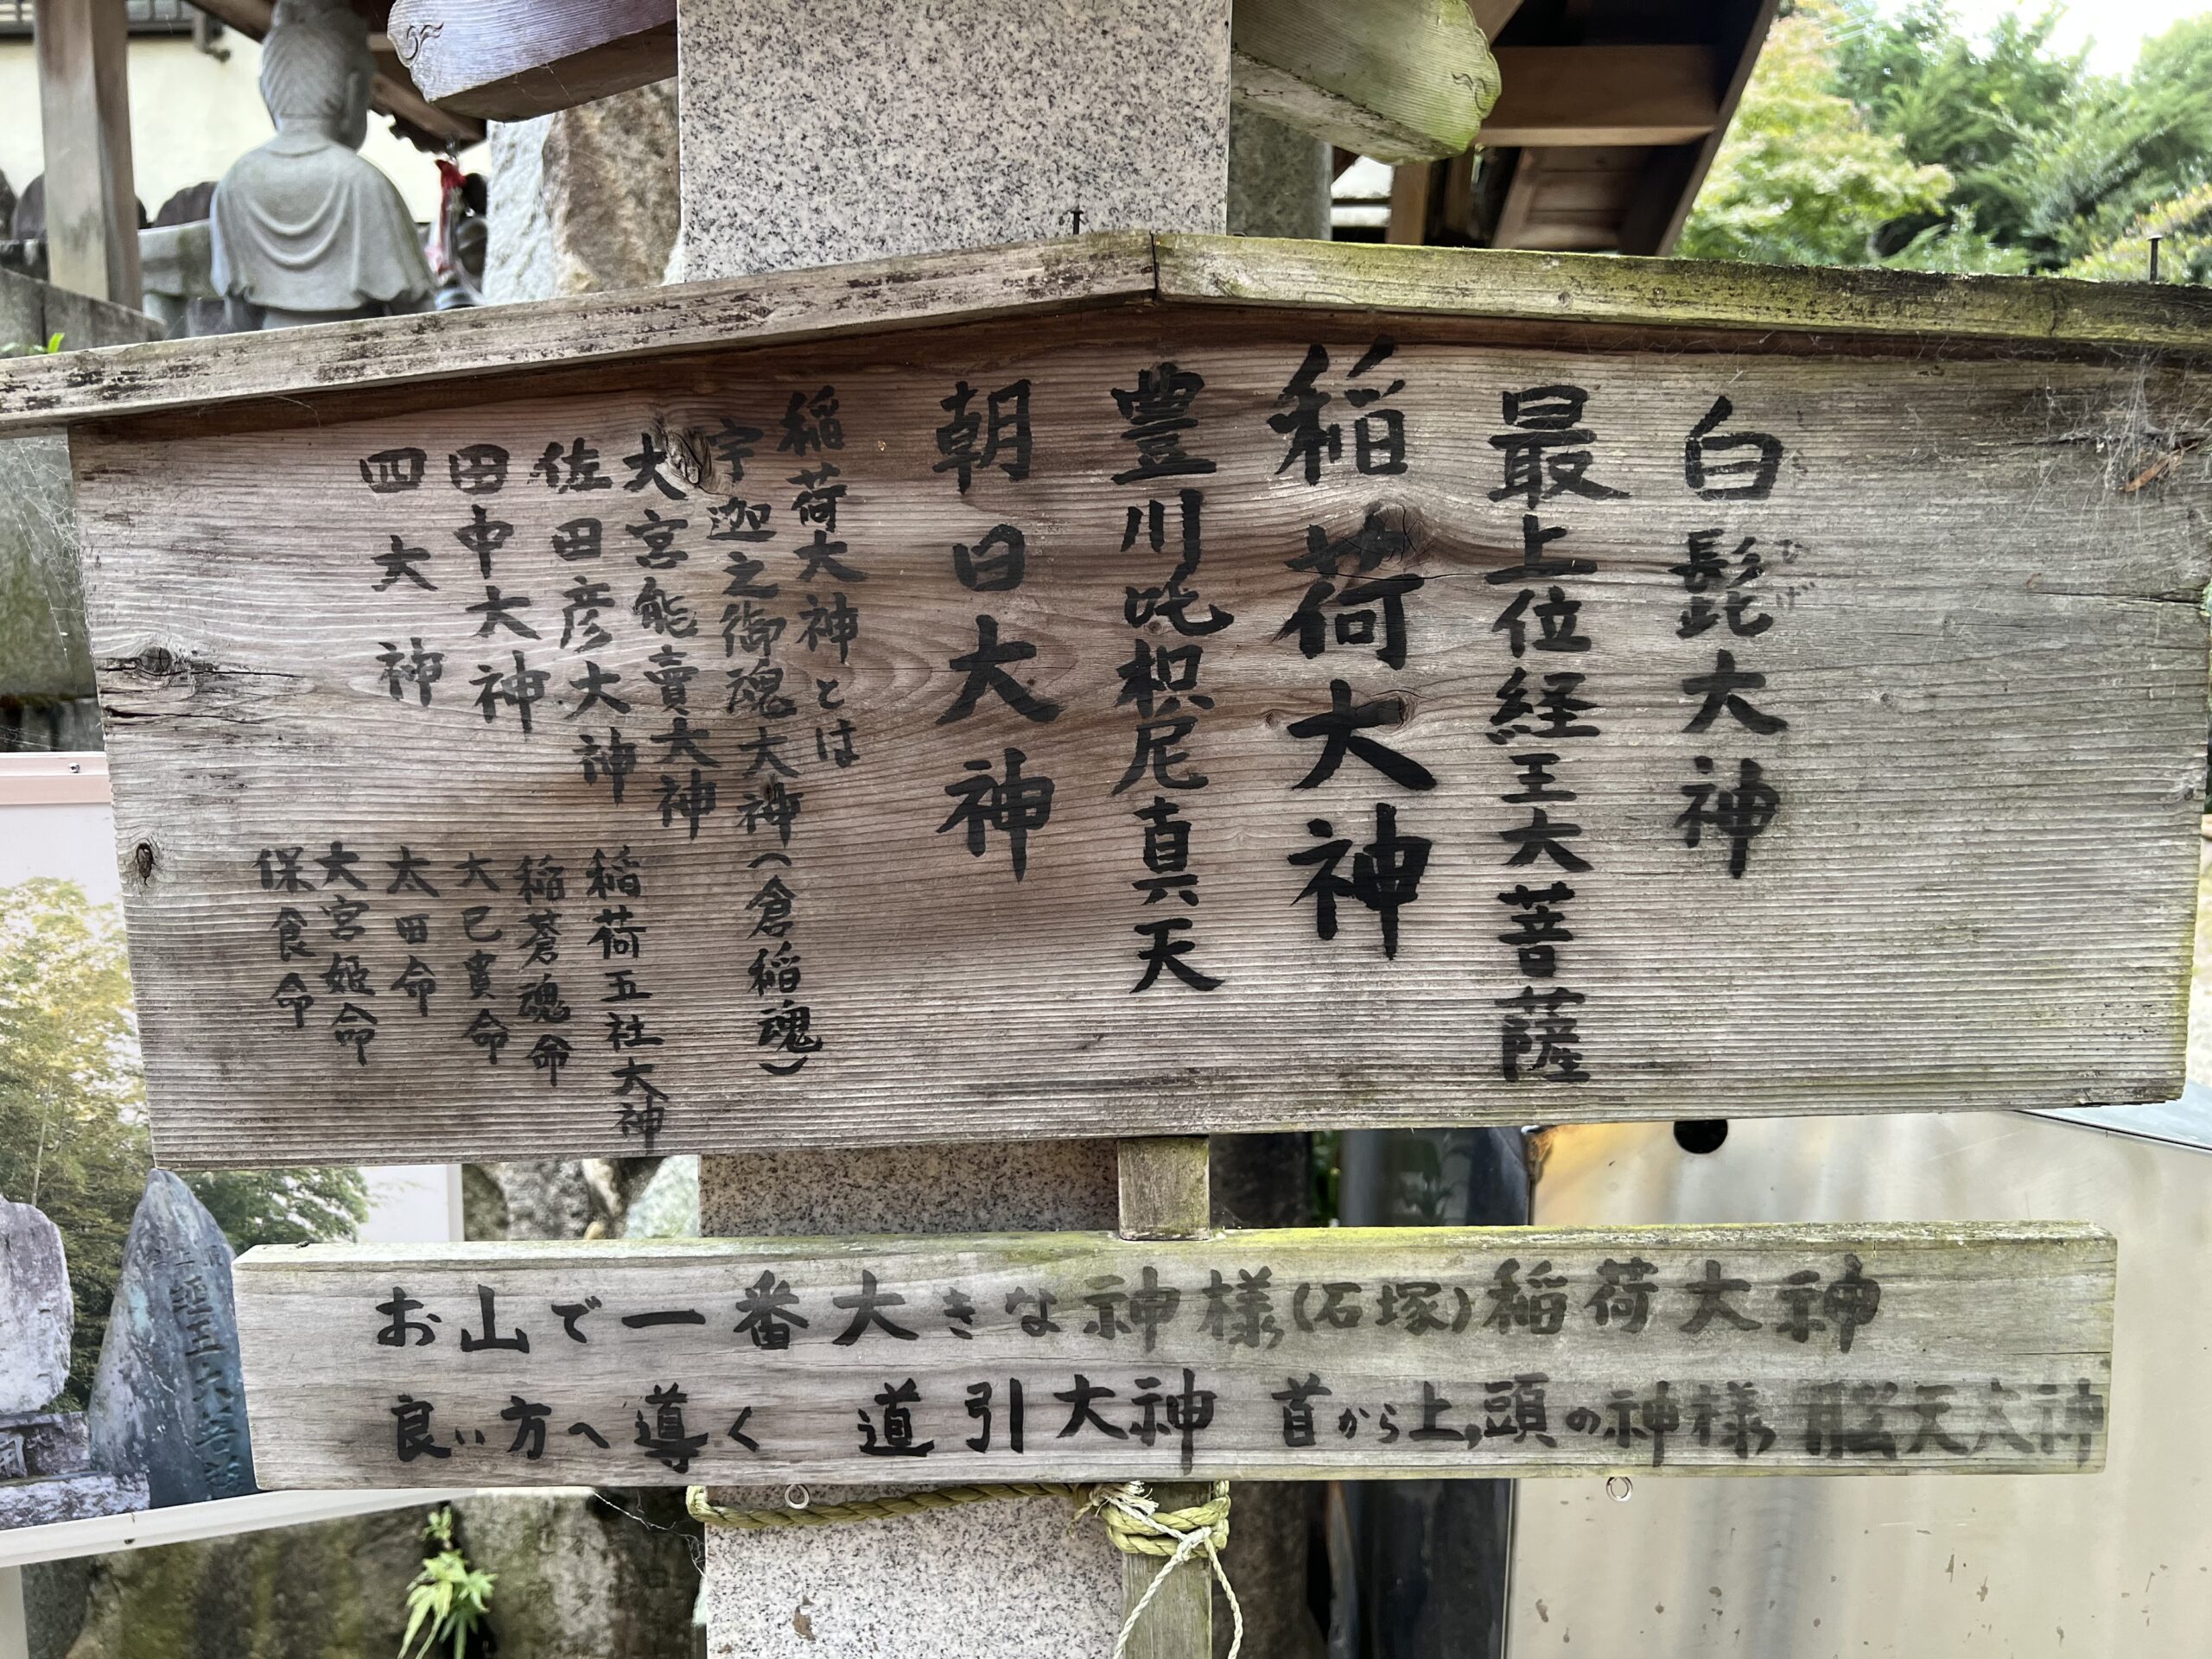 白髭大神
しらひげ
最上位経王大菩薩
稲荷大神
豊川吒枳尼真天
朝日大神
稲荷大神とは
宇迦之御魂大神(倉稲魂)
大宮能賣大神
佐田彦大神
田中大神
四大神
稲荷五社大神
稲蒼魂命
大己貴命
太田命
大宮姫命
保食命
お山で一番大きな神様(石塚)稲荷大神
良い方へ導く 道引大神 首から上,頭の神様 脳天大神